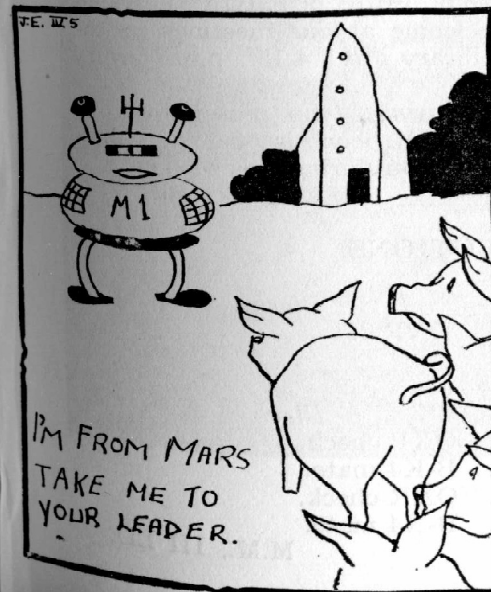 J.E. III 5
M1
I'M FROM MARS
TAKE ME TO
YOUR LEADER.